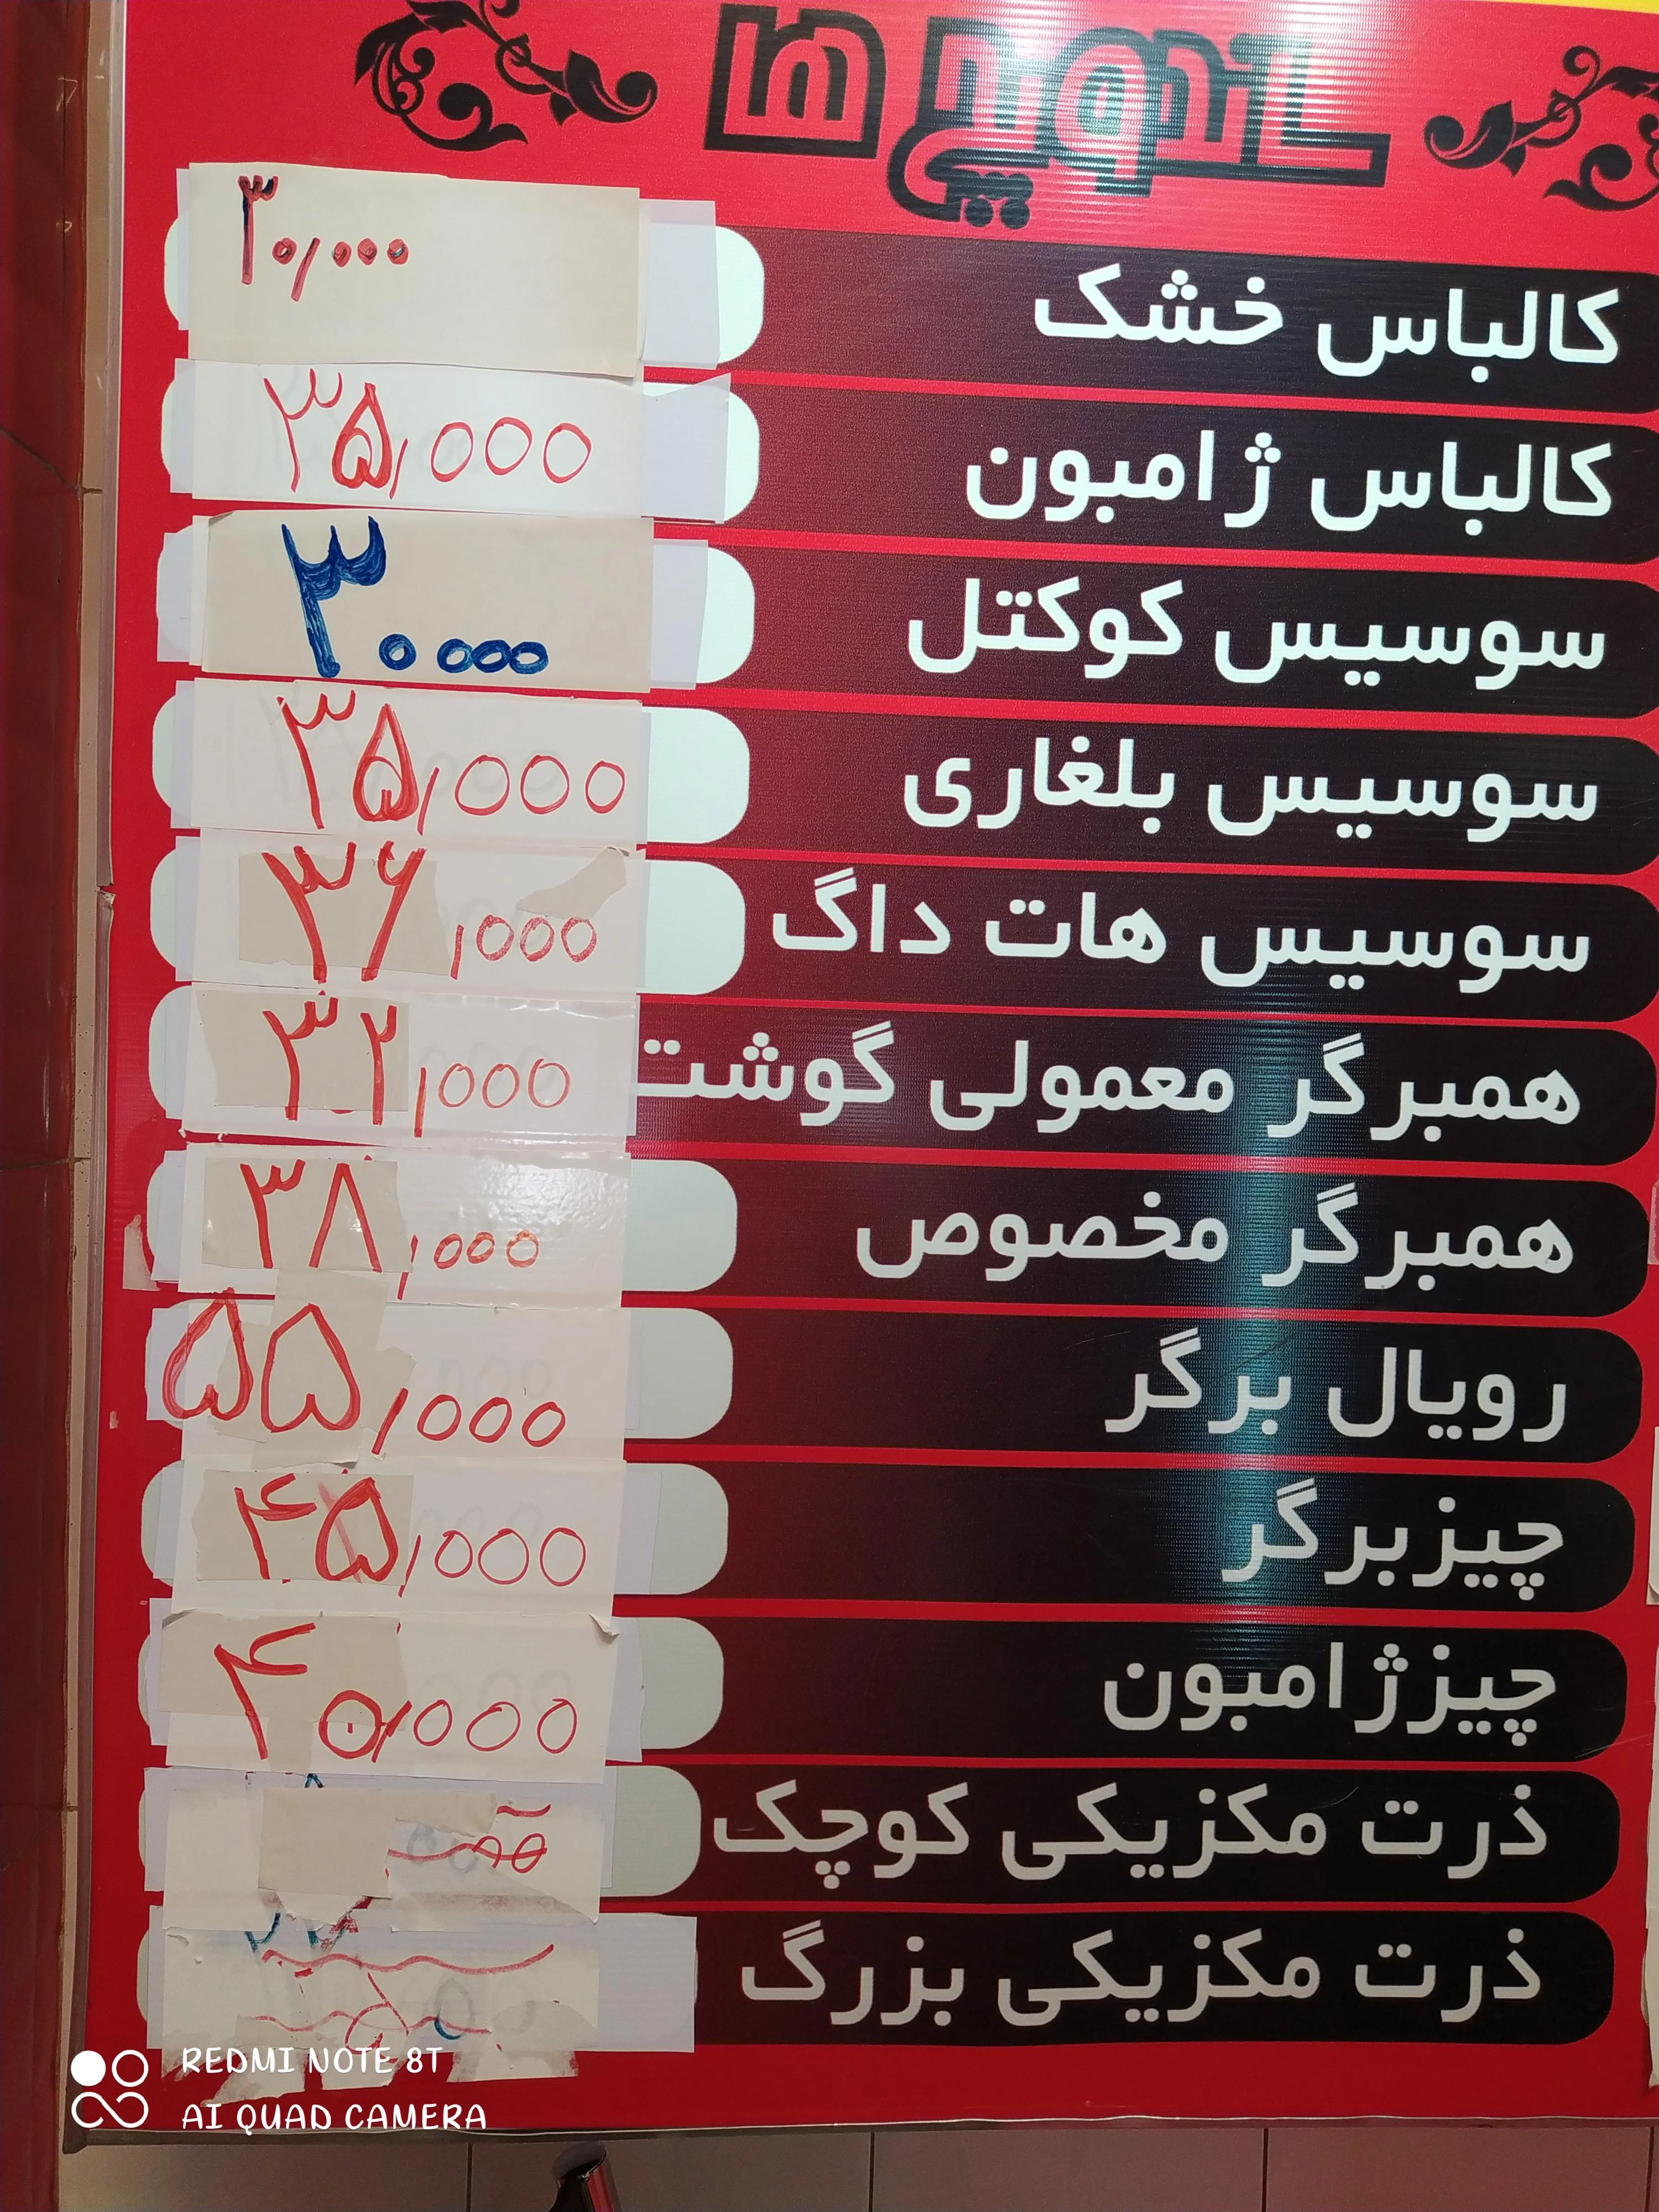 ساندویچ ها
کالباس خشک ۳۰/۰۰۰
کالباس ژامبون ۳۵/۰۰۰
سوسیس کوکتل ۳۰۰۰۰
سوسیس بلغاری ۳۵/۰۰۰
سوسیس هات داگ ۳۶/۰۰۰
همبرگر معمولی گوشت ۳۲/۰۰۰
همبرگر مخصوص ۳۸/۰۰۰
رویال برگر ۵۵/۰۰۰
چیزبرگر ۴۵/۰۰۰
چیزژامبون ۴۰/۰۰۰
ذرت مکزیکی کوچک
ذرت مکزیکی بزرگ
REDMI NOTE 8T
AI QUAD CAMERA